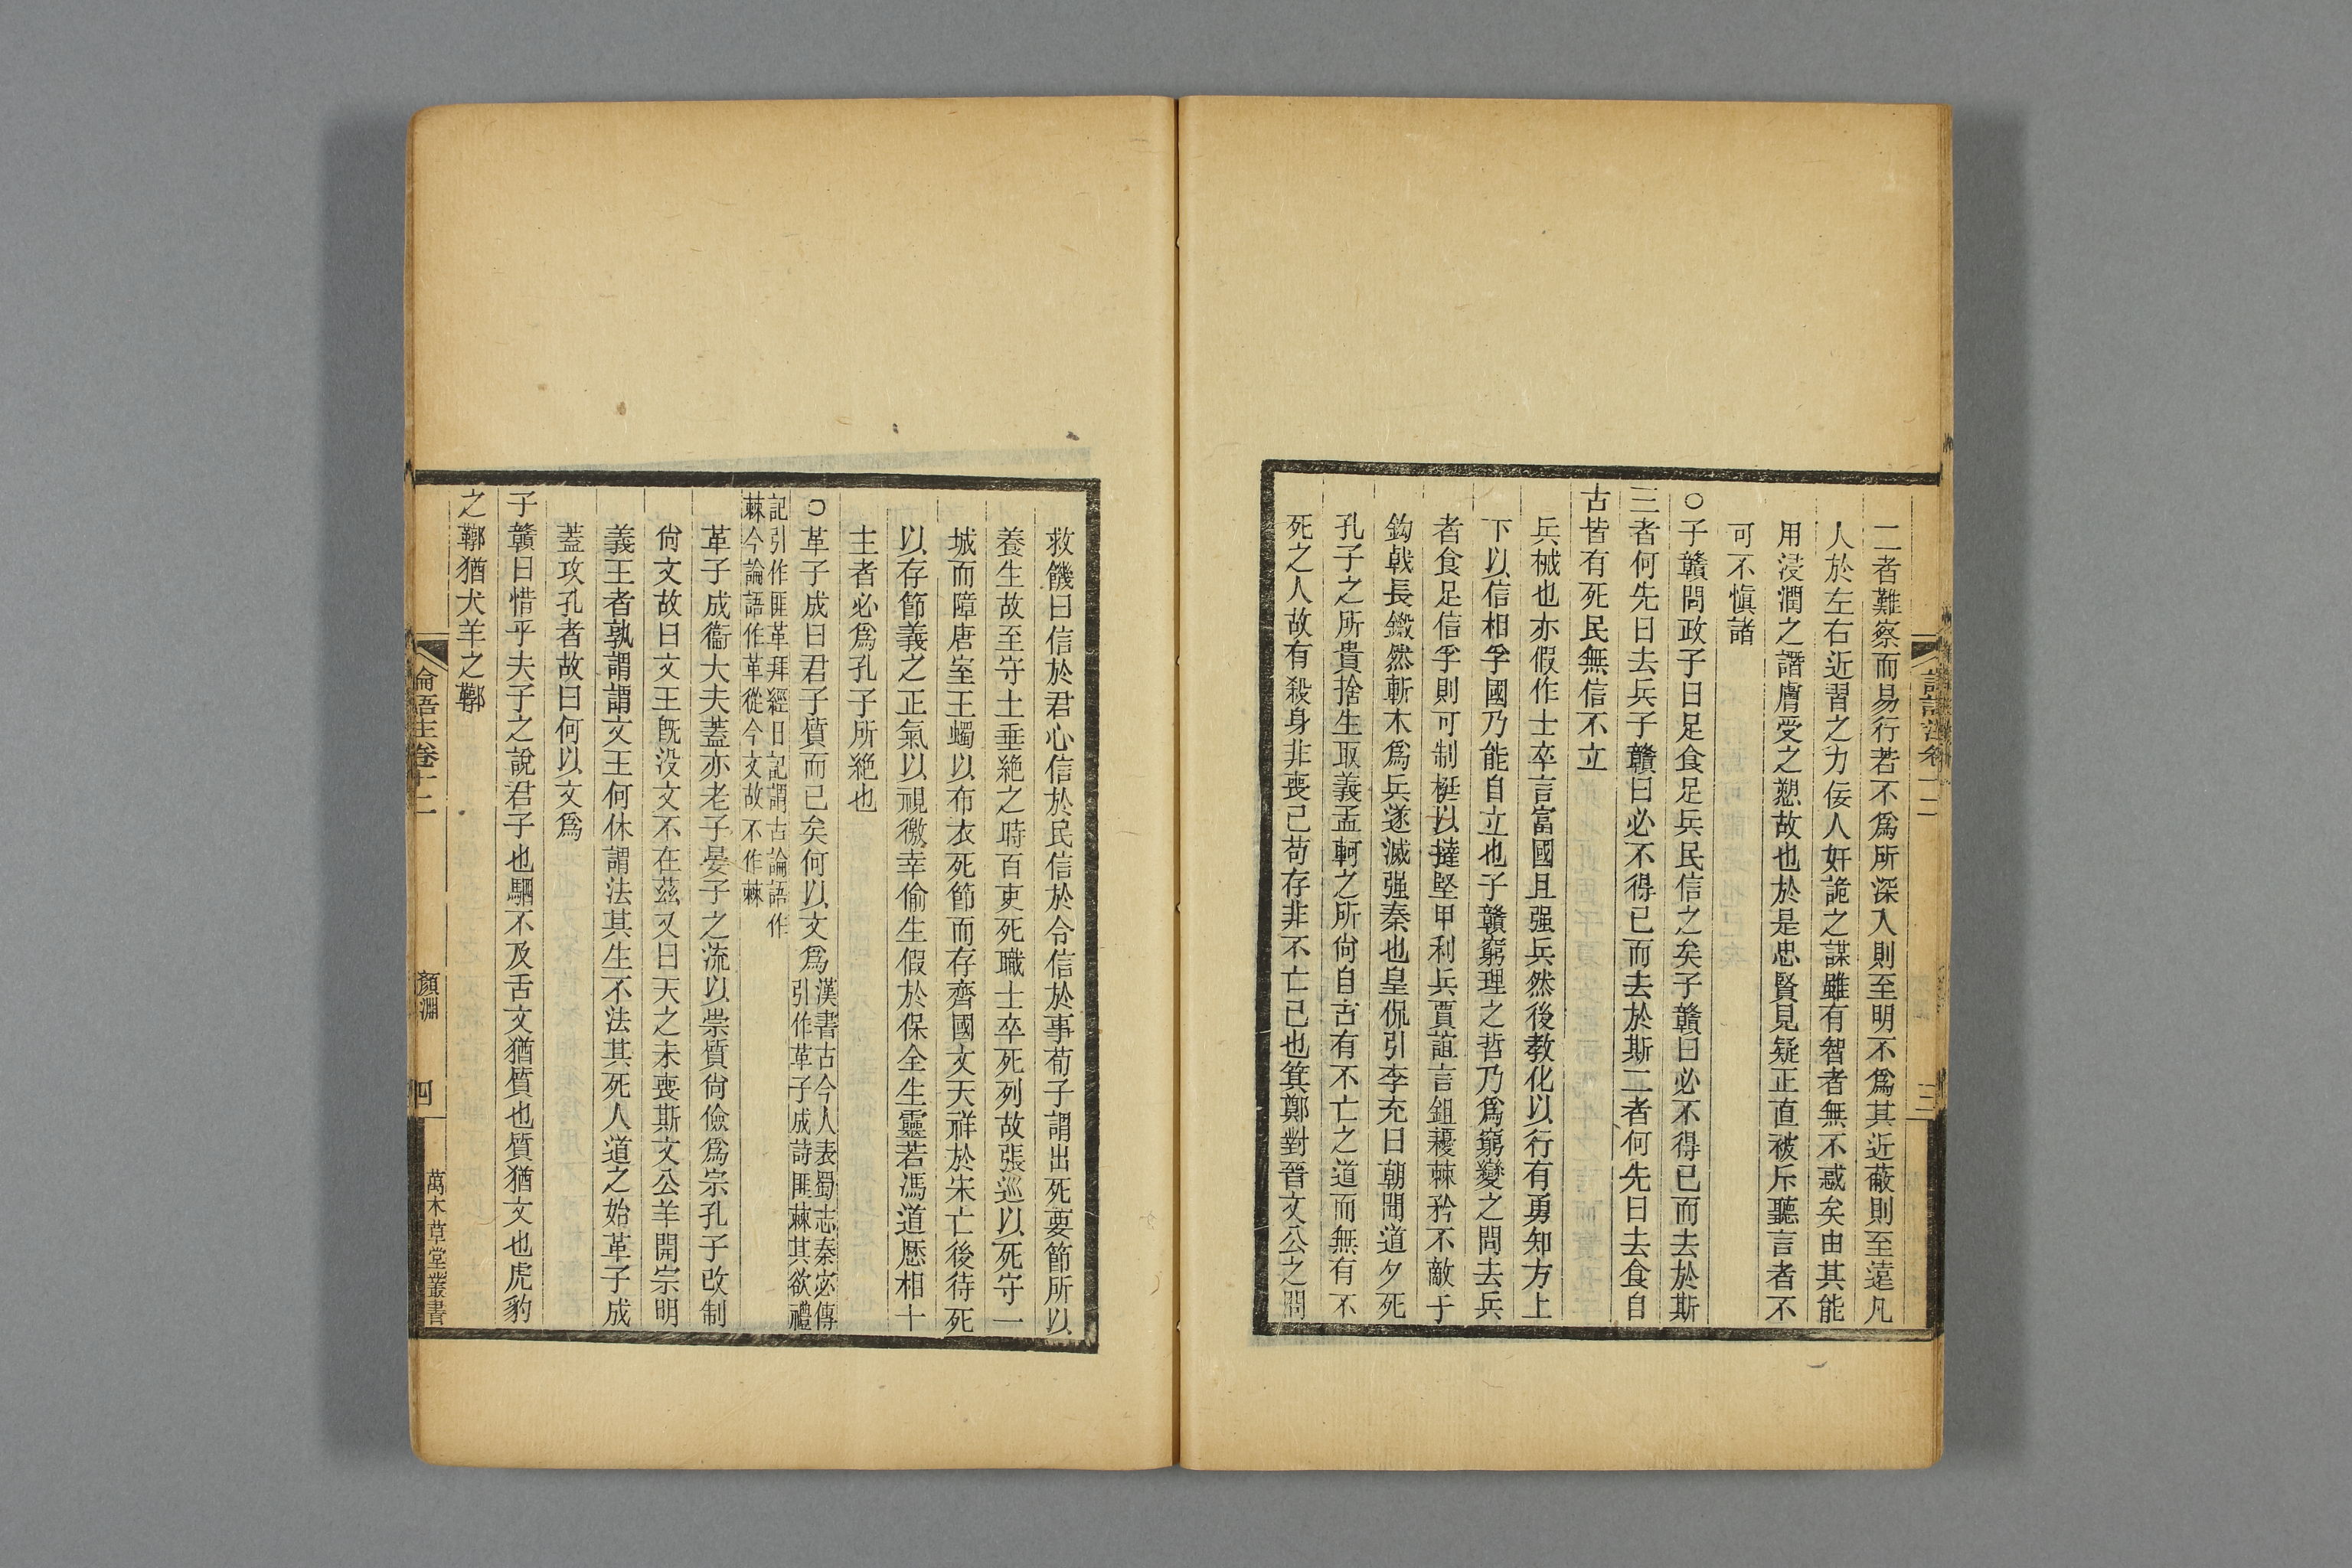 論語注卷十二
三
二者難察而易行若不爲所深入則至明不爲其近蔽則至遠凡
人於左右近習之力佞人奸詭之謀雖有智者無不惑矣由其能
用浸潤之譖膚受之愬故也於是忠賢見疑正直被斥聽言者不
可不愼諸
○子贛問政子曰足食足兵民信之矣子贛曰必不得已而去於斯
三者何先曰去兵子贛曰必不得已而去於斯二者何先曰去食自
古皆有死民無信不立
兵械也亦假作士卒言富國且强兵然後教化以行有勇知方上
下以信相孚國乃能自立也子贛窮理之哲乃爲窮變之問去兵
者食足信孚則可制梃以撻堅甲利兵賈誼言鉏耰棘矜不敵于
鈎戟長鎩然斬木爲兵遂滅强秦也皇侃引李充曰朝聞道夕死
孔子之所貴捨生取義孟軻之所尙自古有不亡之道而無有不
死之人故有殺身非喪己苟存非不亡己也箕鄭對晉文公之問
救饑曰信於君心信於民信於令信於事荀子謂出死要節所以
養生故至守土垂絕之時百吏死職士卒死列故張巡以死守一
城而障唐室王蠋以布衣死節而存齊國文天祥於宋亡後待死
以存節義之正氣以視徼幸偷生假於保全生靈若馮道歷相十
主者必爲孔子所絕也
○革子成曰君子質而已矣何以文爲漢書古今人表蜀志秦宓傳
引作革子成詩匪棘其欲禮
記引作匪革拜經日記謂古論語作
棘今論語作革從今文故不作棘
革子成衞大夫蓋亦老子晏子之流以崇質尙儉爲宗孔子改制
尙文故曰文王旣沒文不在茲又曰天之未喪斯文公羊開宗明
義王者孰謂謂文王何休謂法其生不法其死人道之始革子成
蓋攻孔者故曰何以文爲
子贛曰惜乎夫子之說君子也駟不及舌文猶質也質猶文也虎豹
之鞹猶犬羊之鞹
論語注卷十二
顏淵
四
萬木草堂叢書